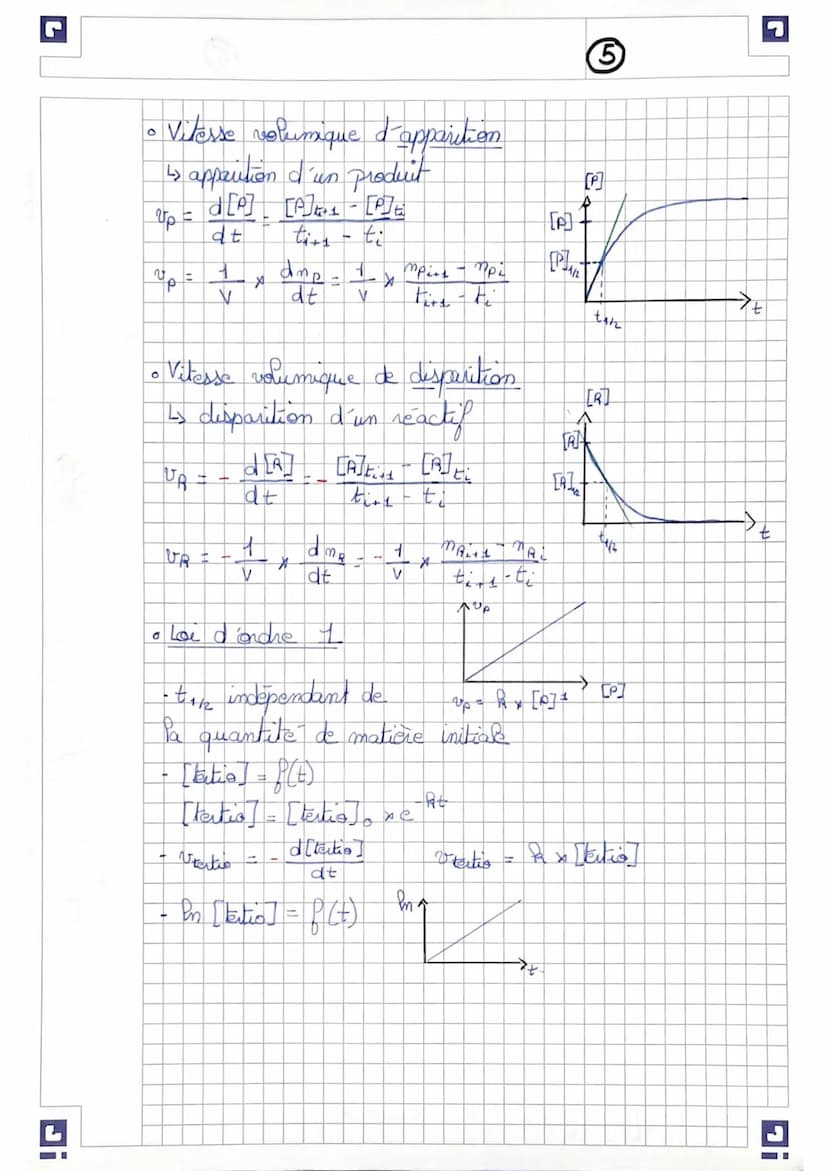 5
• Vitesse volumique d'apparition
↳ apparition d'un produit
v_P = d[P]/dt = ([P]_ti+1 - [P]_ti)/(t_i+1 - t_i)
v_P = 1/V × dn_P/dt = 1/V × (n_Pi+1 - n_Pi)/(t_i+1 - t_i)
[P]
[P]
[P]_1/2
t_1/2
t
• Vitesse volumique de disparition
↳ disparition d'un réactif
v_R = - d[R]/dt = - ([R]_ti+1 - [R]_ti)/(t_i+1 - t_i)
v_R = - 1/V × dn_R/dt = - 1/V × (n_Ri+1 - n_Ri)/(t_i+1 - t_i)
[R]
[R]
[R]_1/2
t_1/2
t
• Loi d'ordre 1
v_P
[P]
v_P = k × [P]^1
- t_1/2 indépendant de
la quantité de matière initiale
- [tertio] = f(t)
[tertio] = [tertio]_0 × e^-kt
- v_tertio = - d[tertio]/dt v_tertio = k × [tertio]
- ln [tertio] = f(t)
ln
t